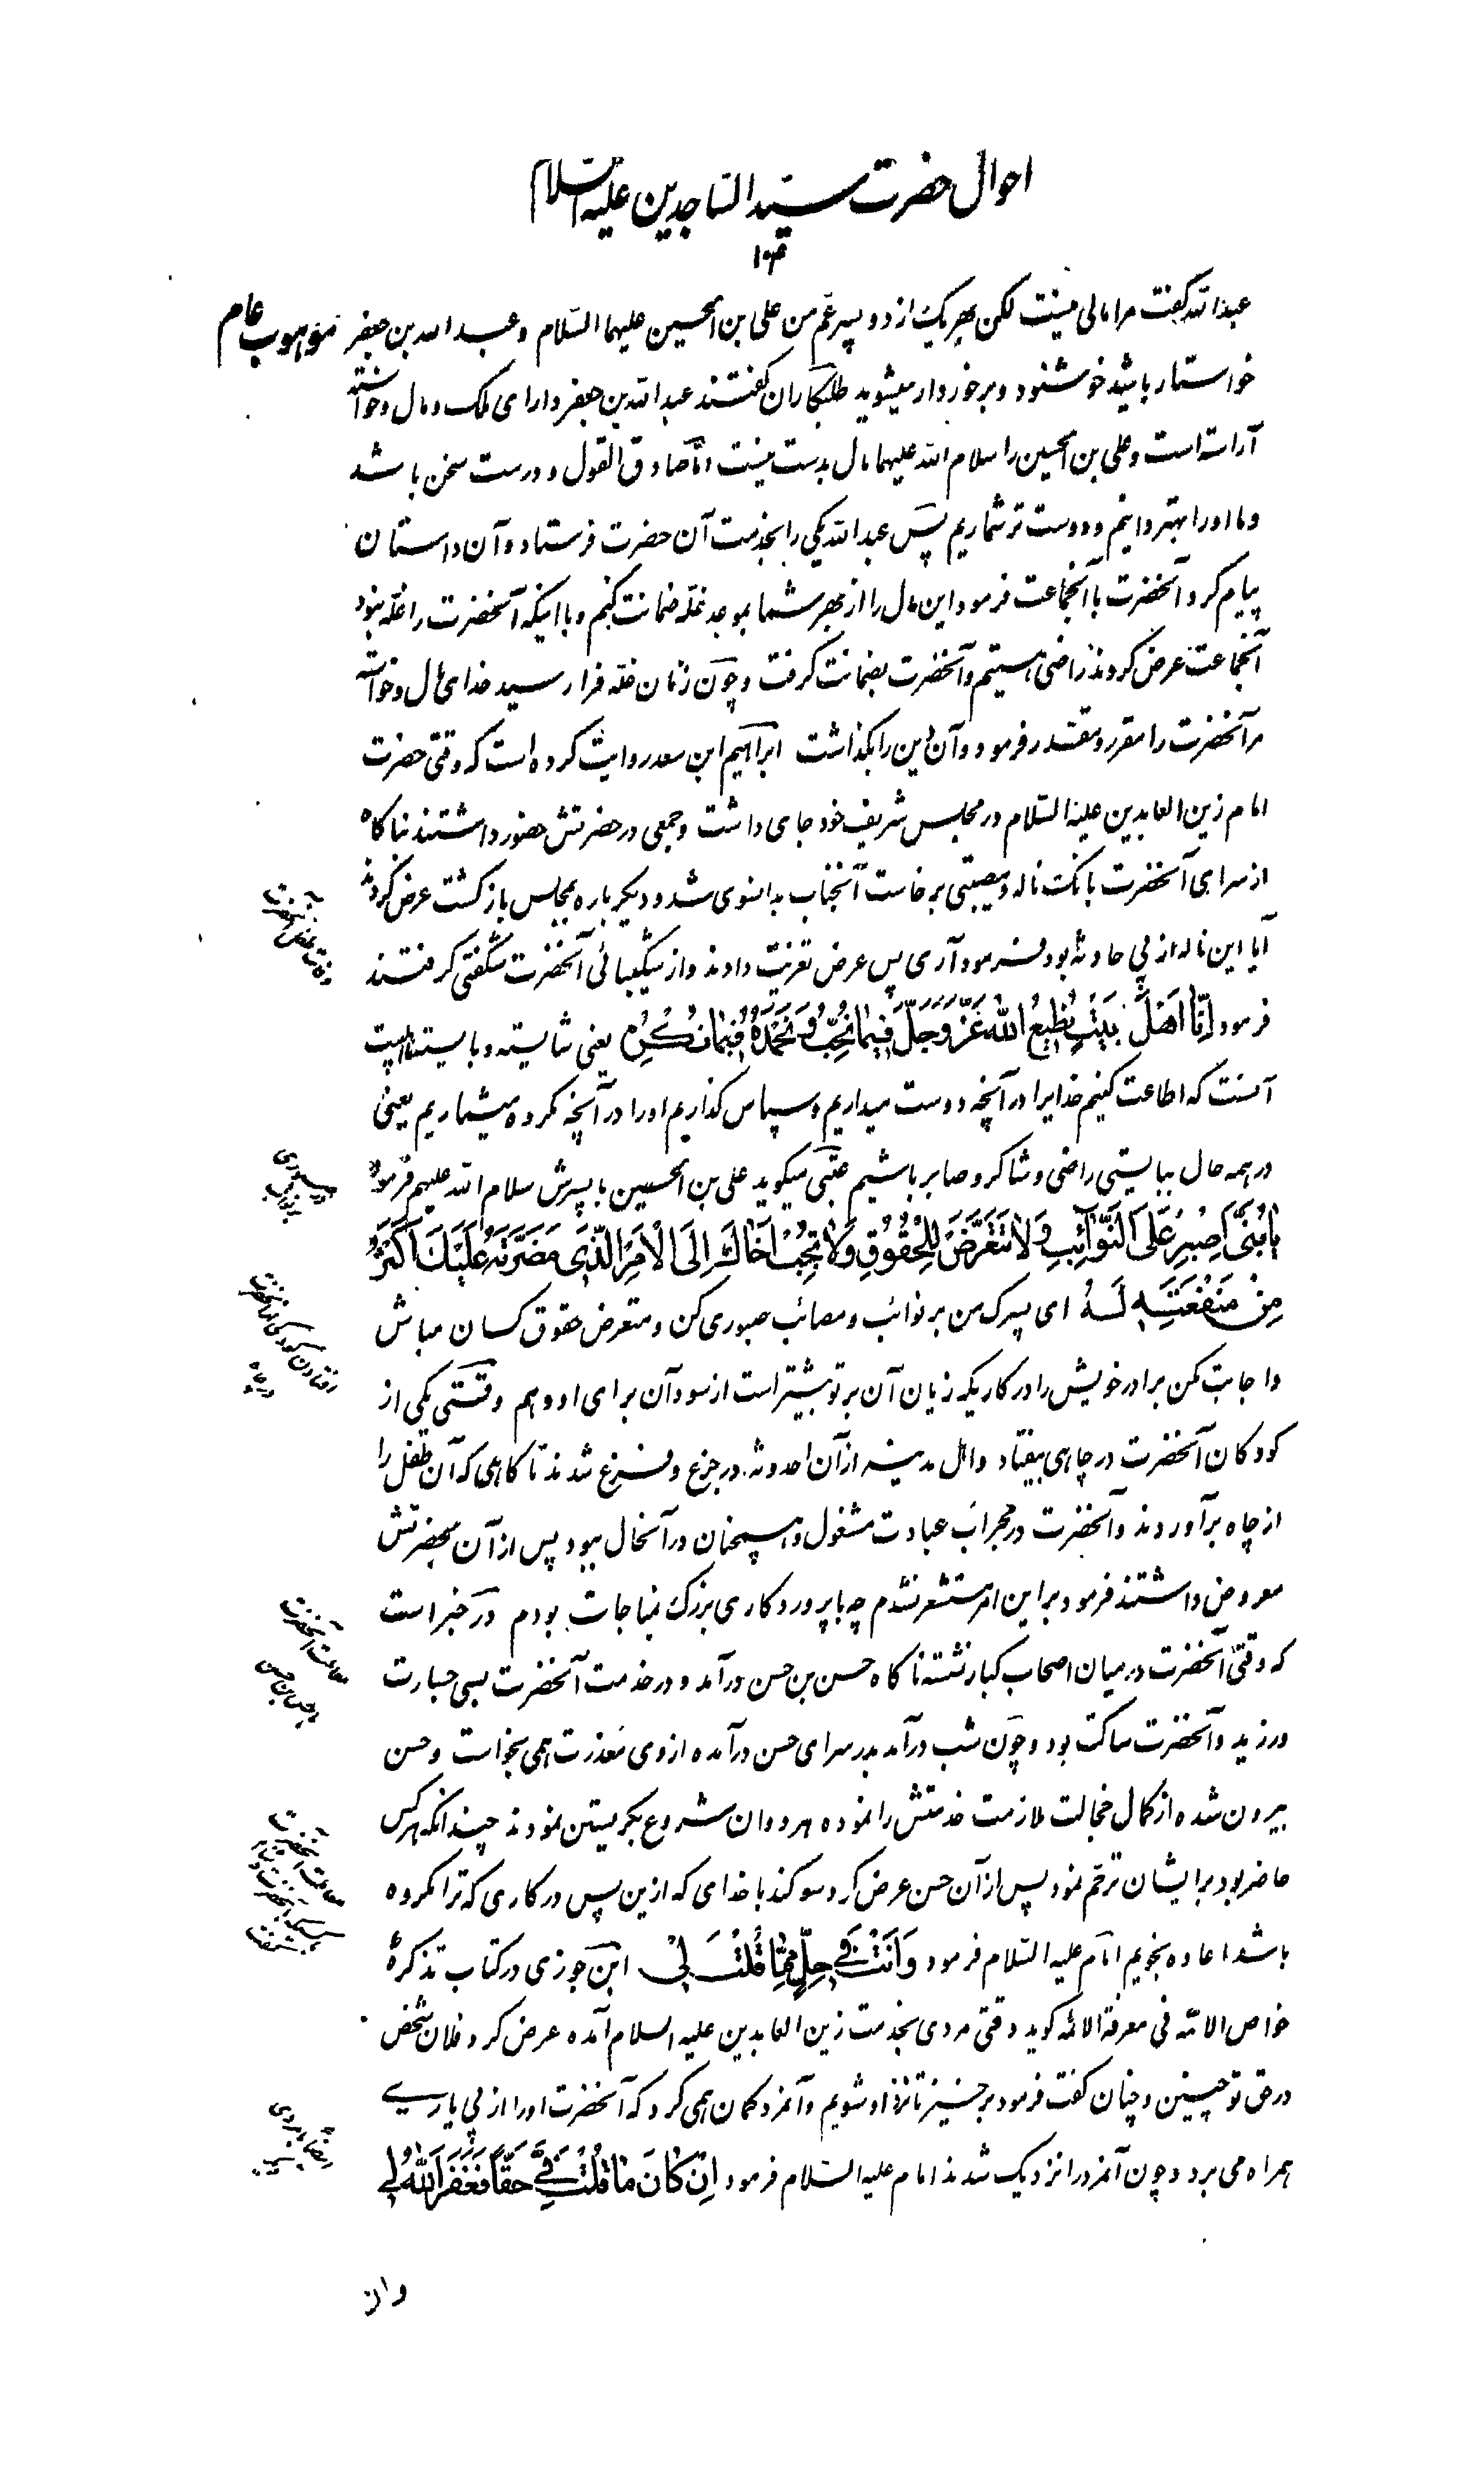 احوال حضرت سید الساجدین علیه السلام
۱۰۴
عبدالله گفت مرا مالی نیست لکن بهر یک از دو پسر عم من علی بن الحسین علیهما السلام و عبد الله بن جعفر
خواستار باشید خوشنود و برخوردار میشوید طلبکاران گفتند عبدالله بن جعفر دارای ملک و مال و خواسته
آراسته است و علی بن الحسین را سلام الله علیهما مال بدست نیست اما صادق القول و درست سخن باشد
و ما او را بهتر دانیم و دوست تر شماریم پس عبدالله یکی را بخدمت آن حضرت فرستاد و آن داستان
پیام کرد آنحضرت با آنجماعت فرمود این مال را از بهر شما بموعد غله ضمانت کنم و با اینکه آنحضرت را غله نبود
آنجماعت عرض کردند راضی هستیم و آنحضرت بضمانت گرفت و چون زمان غله فرا رسید خدای مال و خواسته
مر آنحضرت را مقرر و مقدر فرمود و آن دین را بگذاشت ابراهیم ابن سعد روایت کرده است که وقتی حضرت
امام زین العابدین علیه السلام در مجلس شریف خود جای داشت و جمعی در حضرتش حضور داشتند ناگاه
از سرای آنحضرت بانگ ناله و مصیبتی برخاست آنجناب بدانسوی شد و دیگر باره بمجلس بازگشت عرض کردند
آیا این ناله از پی حادثه بود فرمود آری پس عرض تعزیت دادند و از شکیبائی آنحضرت شگفتی گرفتند
فرمود اِنّا اَهْلَ بَیْتٍ نُطیعُ اللهَ عَزَّ وَجَلَّ فیما نُحِبُّ وَنَحْمَدُهُ فیما نَکْرَهُ یعنی شایسته و بایسته اهل بیت
آنست که اطاعت کنیم خدایرا در آنچه دوست میداریم و سپاس گذاریم او را در آنچه مکروه میشماریم یعنی
در همه حال ببایستی راضی و شاکر و صابر باشیم عتبی میگوید علی بن الحسین با پسرش سلام الله علیهم فرمود
یا بُنَیَّ اِصْبِرْ عَلَی النَّوآئِبِ وَلا تَتَعَرَّضْ لِلْحُقُوقِ وَلا تُجِبْ اَخاکَ اِلَی الْاَمْرِ الَّذی مَضَرَّتُهُ عَلَیْکَ اَکْثَرُ
مِنْ مَنْفَعَتِهِ لَهُ ای پسرک من بر نوائب و مصائب صبوری کن و متعرض حقوق کسان مباش
و اجابت مکن برادر خویش را در کاریکه زیان آن بر تو بیشتر است از سود آن برای او و هم وقتی یکی از
کودکان آنحضرت در چاهی بیفتاد و اهل مدینه از آن احدوثه در جزع و فزع شدند تا گاهی که آن طفل را
از چاه برآوردند و آنحضرت در محراب عبادت مشغول و همچنان در آنحال ببود پس از آن بحضرتش
معروض داشتند فرمود بر این امر مستشعر نشدم چه با پروردگاری بزرگ بمناجات بودم در خبر است
که وقتی آنحضرت در میان اصحاب کبار نشسته ناگاه حسن بن حسن درآمد و در خدمت آنحضرت بسی جسارت
ورزید و آنحضرت ساکت بود و چون شب درآمد بدر سرای حسن درآمده از وی معذرت همی بخواست و حسن
بیرون شده از کمال خجالت ملازمت خدمتش را نموده هر دوان شروع بگریستن نمودند چندانکه هر کس
حاضر بود بر ایشان ترحم نمود پس از آن حسن عرض کرد سوگند با خدای که ازین پس در کاری که ترا مکروه
باشد اعاده نجویم امام علیه السلام فرمود وَ اَنْتَ فی حِلٍّ مِمّا قُلْتَ لی ابن جوزی در کتاب تذکرة
خواص الامه فی معرفة الائمه گوید وقتی مردی بخدمت زین العابدین علیه السلام آمده عرض کرد فلان شخص
در حق تو چنین و چنان گفت فرمود برخیز تا نزد او شویم و آنمرد گمان همی کرد که آنحضرت او را از پی یاری
همراه می برد و چون آنمرد را نزدیک شدند امام علیه السلام فرمود اِنْ کانَ ما قُلْتَ فِیَّ حَقّاً فَغَفَرَ اللهُ لی
وان